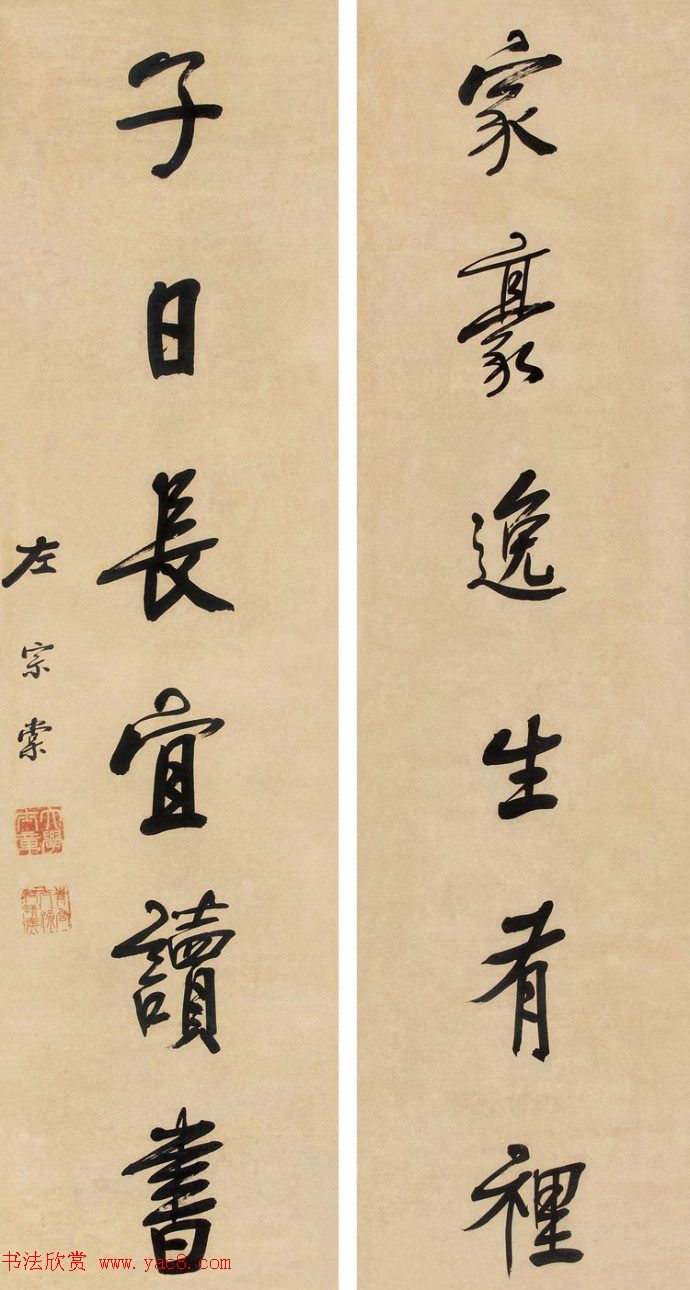 家豪逸生有裡
子日長宜讀書
左宗棠
大學士章
书法欣赏 www.yac8.com